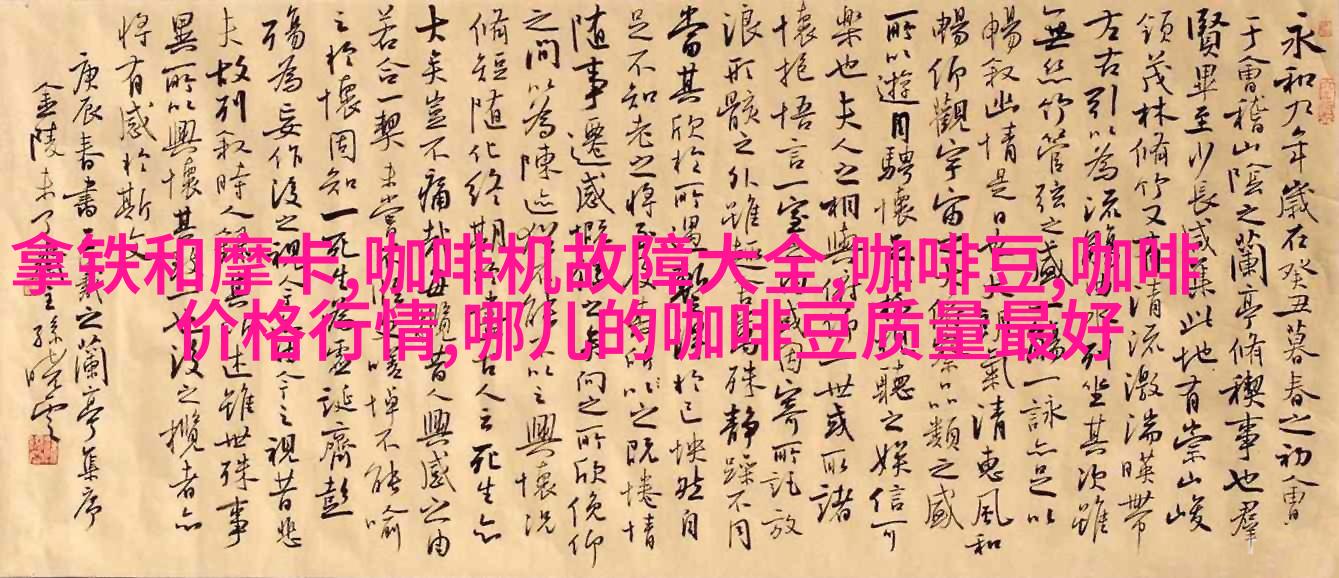 拿铁和摩卡,咖啡机故障大全,咖啡豆,咖啡
价格行情,哪儿的咖啡豆质量最好
永和九年歲在癸丑暮春之初會
于會稽山陰之蘭亭脩禊事也群
賢畢至少長咸集此地有崇山峻
領茂林脩竹又有清流激湍暎帶
左右引以為流觴曲水列坐其次雖
無絲竹管弦之盛一觴一詠亦足以
暢敘幽情是日也天朗氣清惠風和
暢仰觀宇宙之大俯察品類之盛
所以遊目騁懷足以極視聽之娛信可
樂也夫人之相與俯仰一世或取諸
懷抱悟言一室之內或因寄所託放
浪形骸之外雖趣舍萬殊靜躁不同
當其欣於所遇暫得於己怏然自
足不知老之將至及其所之既惓情
隨事遷感慨係之矣向之所欣俛仰
之間以為陳迹猶不能不以之興懷況
脩短隨化終期於盡古人云死生亦
大矣豈不痛哉每覽昔人興感之由
若合一契未嘗不臨文嗟悼不能喻
之於懷固知一死生為虛誕齊彭
殤為妄作後之視今亦由今之視昔悲
夫故列敘時人錄其所述雖世殊事
異所以興懷其致一也後之攬者亦
將有感於斯文
庚辰春書王羲之蘭亭集序
金陵未了堂主孫曉雲